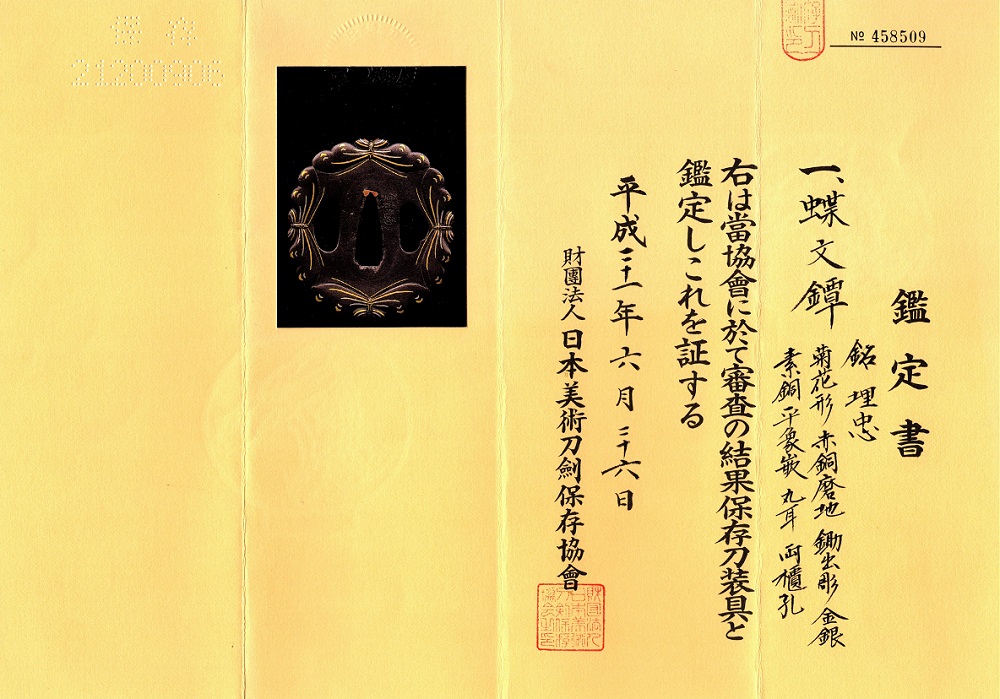 № 458509
鑑定書
一、蝶文鐔
銘 埋忠
菊花形 赤銅磨地 鋤出彫 金銀
素銅平象嵌 丸耳 両櫃孔
右は當協會に於て審査の結果保存刀装具と
鑑定しこれを証する
平成二十一年六月二十六日
財團法人日本美術刀劍保存協會
保存
21200906